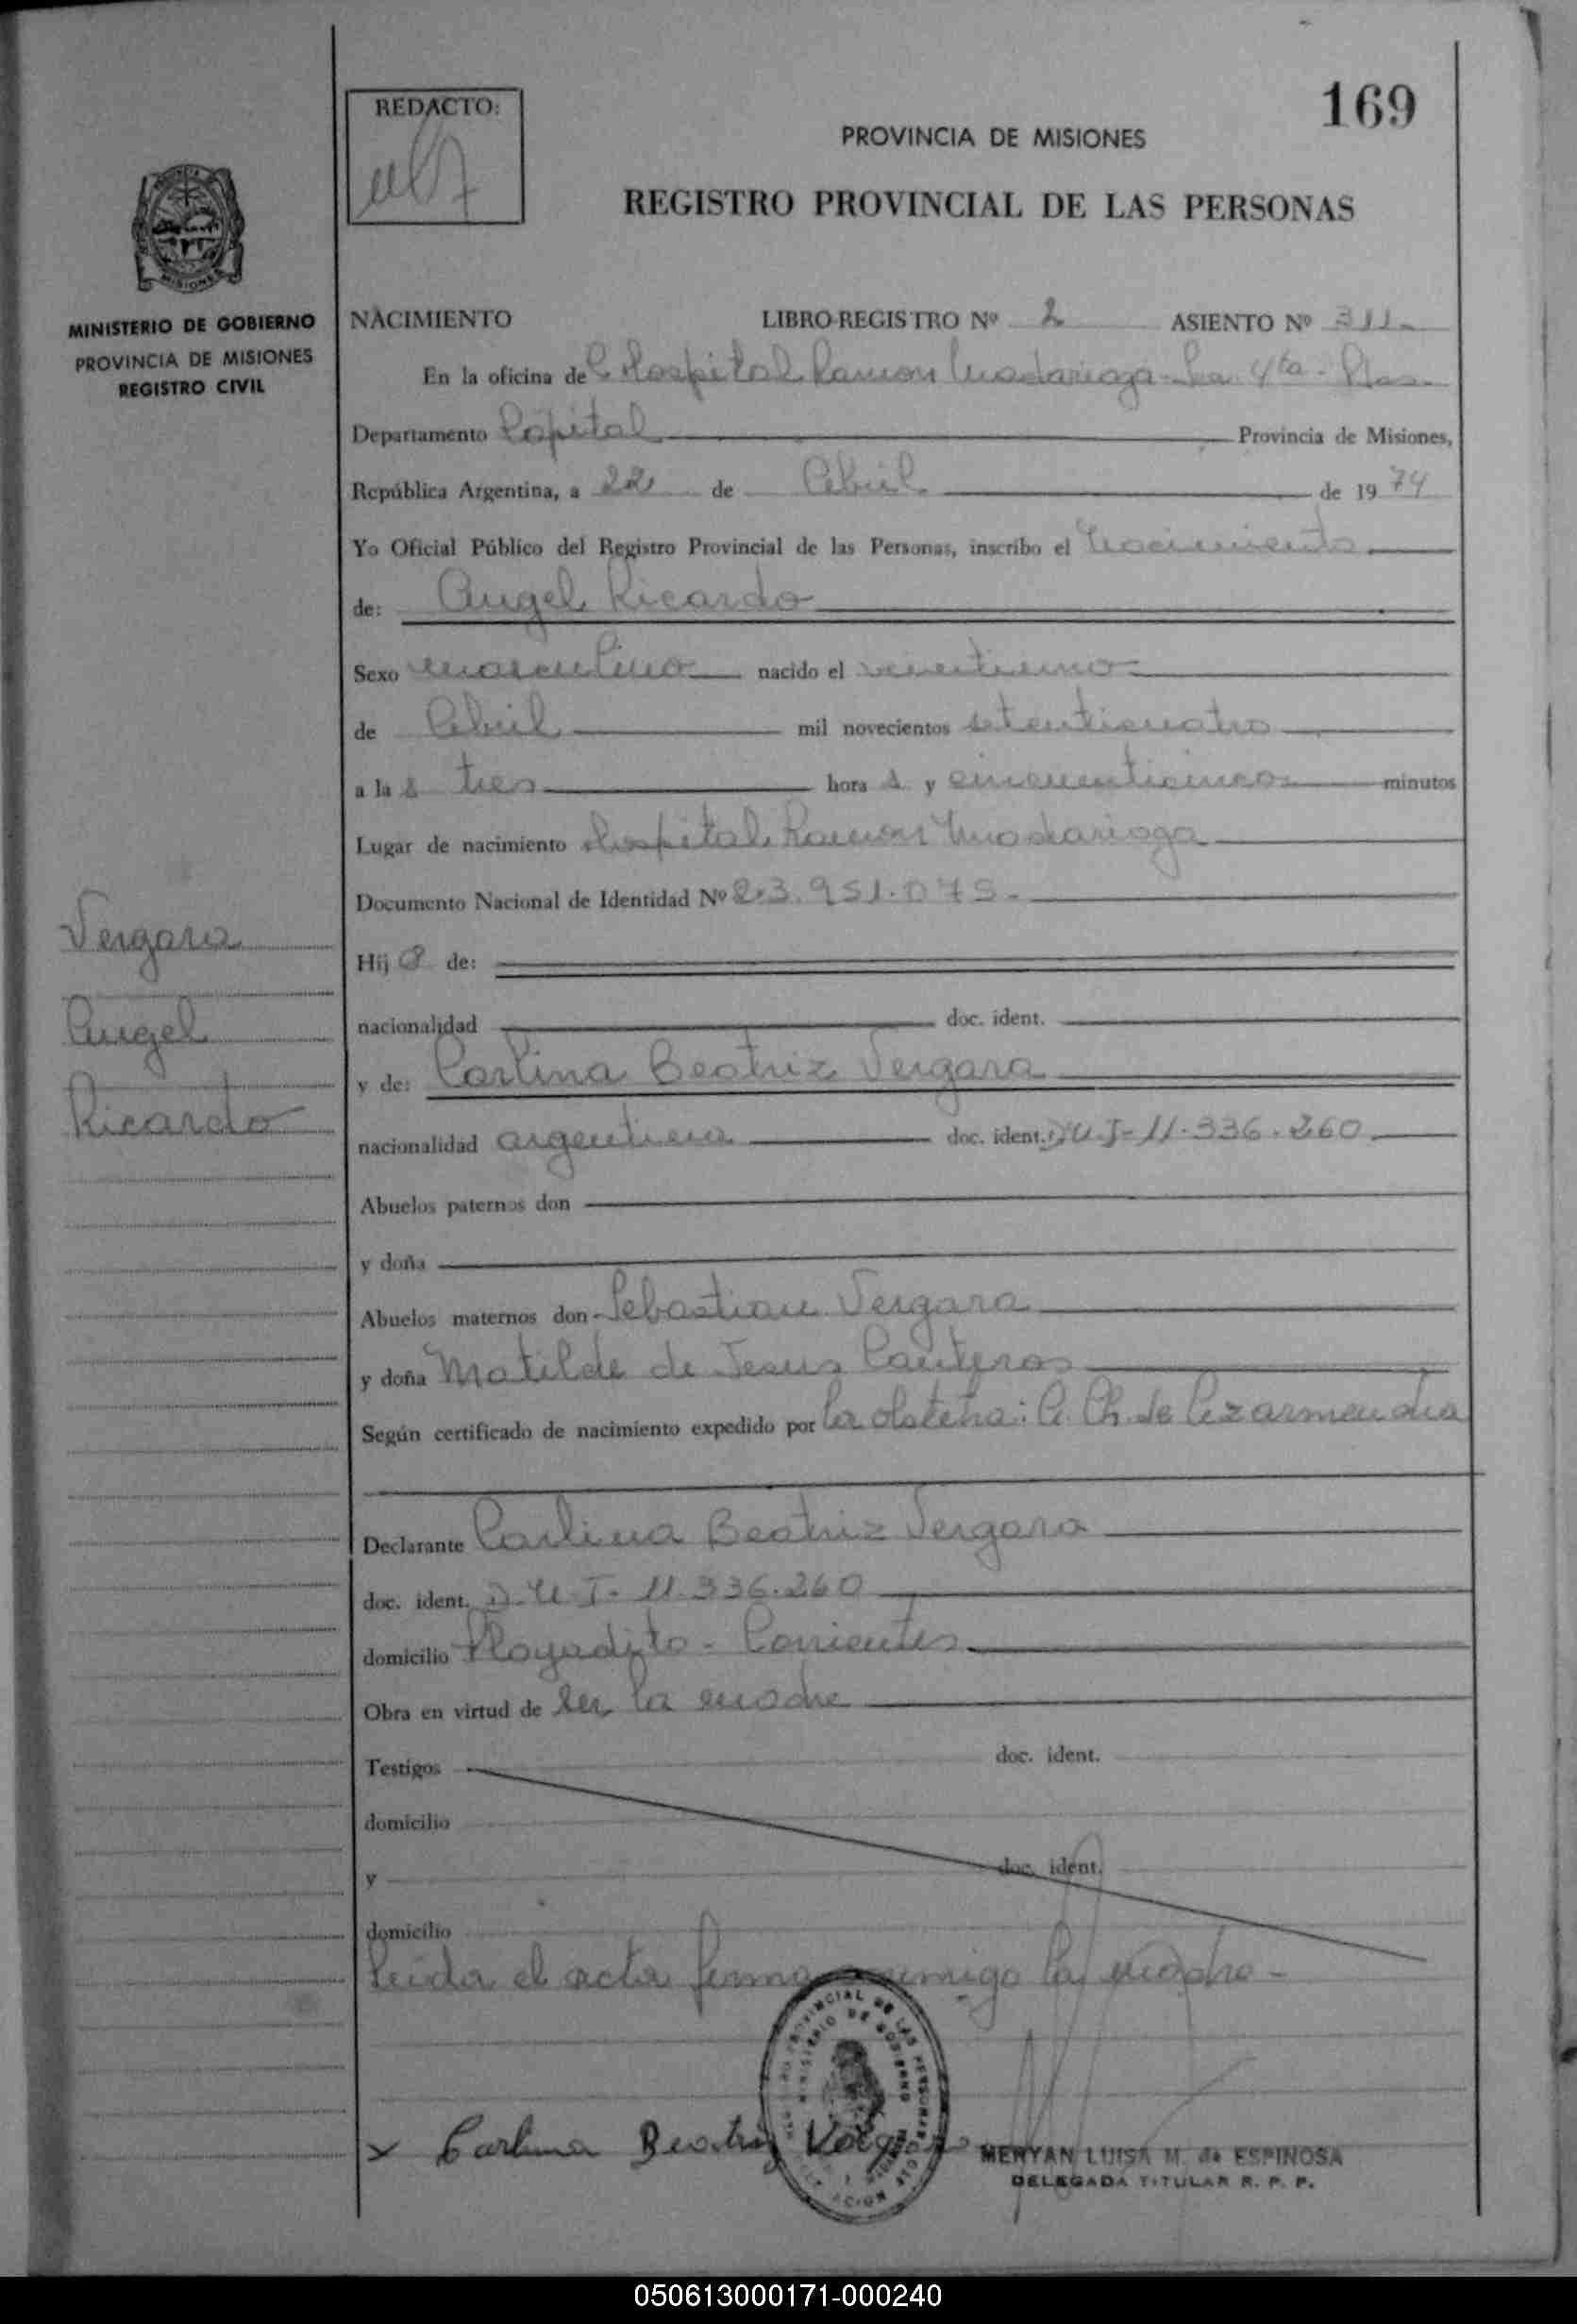 169
REDACTO:
PROVINCIA DE MISIONES
REGISTRO PROVINCIAL DE LAS PERSONAS
MISIONES
MINISTERIO DE GOBIERNO
PROVINCIA DE MISIONES
REGISTRO CIVIL
NACIMIENTO LIBRO-REGISTRO Nº 2 ASIENTO Nº 311
En la oficina de Hospital Ramon Madariaga 4ta
Departamento Capital Provincia de Misiones,
República Argentina, a 22 de Abril de 1974
Yo Oficial Público del Registro Provincial de las Personas, inscribo el Nacimiento
de: Angel Ricardo
Sexo masculino nacido el veintiuno
de Abril mil novecientos setenticuatro
a las tres horas y cincuenticinco minutos
Lugar de nacimiento Hospital Ramon Madariaga
Documento Nacional de Identidad Nº 23.951.075.-
Vergara
Angel
Ricardo
Hijo de:
nacionalidad doc. ident.
y de: Carlina Beatriz Vergara
nacionalidad argentina doc. ident. D.U.I- 11.336.260
Abuelos paternos don
y doña
Abuelos maternos don Sebastian Vergara
y doña Matilde de Jesus Canteros
Según certificado de nacimiento expedido por la obstetra: Ch. de
Declarante Carlina Beatriz Vergara
doc. ident. D.U.I- 11.336.260
domicilio Playadito - Corrientes
Obra en virtud de ser la madre
Testigos doc. ident.
domicilio
y doc. ident.
domicilio
Leida el acta firma conmigo la madre-
x Carlina Beatriz Vergara
MERYAN LUISA M. de ESPINOSA
DELEGADA TITULAR R. P. P.
050613000171-000240